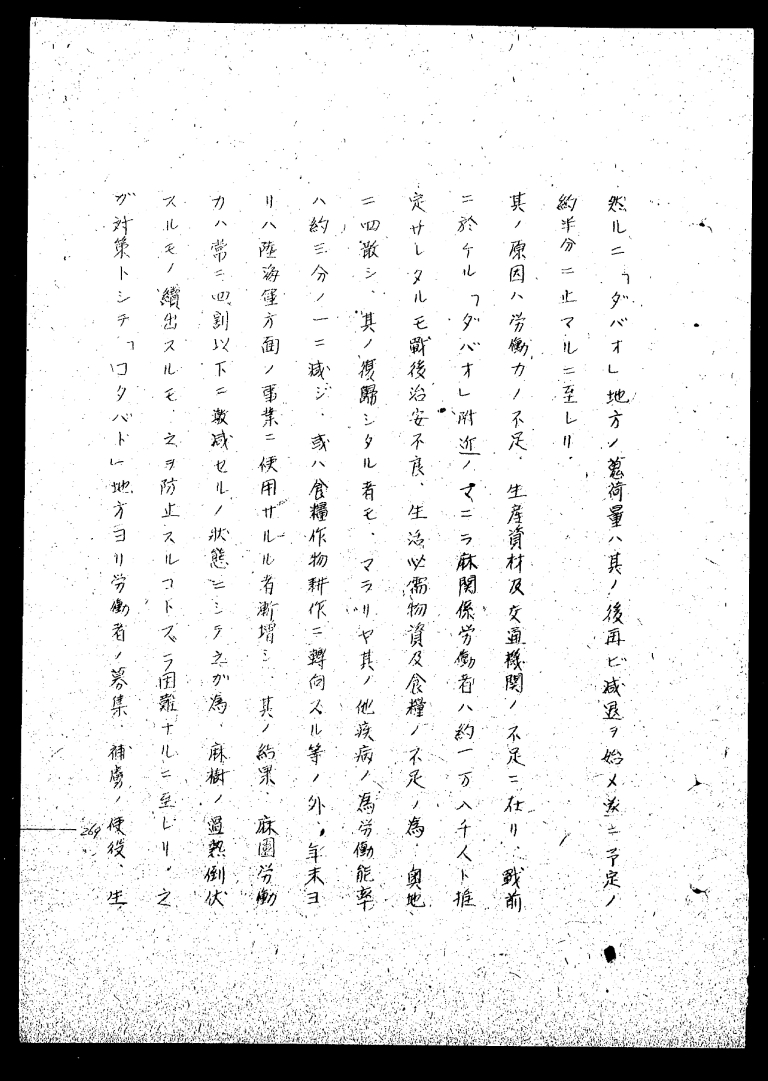 然ルニ「ダバオ」地方ノ蒐荷量ハ其ノ後再ビ減退ヲ始メ遂ニ予定ノ
約半分ニ止マルニ至レリ、
其ノ原因ハ労働力ノ不足、生産資材及交通機関ノ不足ニ在リ、戦前
ニ於ケル「ダバオ」附近ノマニラ麻関係労働者ハ約一万八千人ト推
定サレタルモ戦後治安不良、生活必需物資及食糧ノ不足ノ為、奥地
ニ四散シ、其ノ復帰シタル者モ、マラリヤ其ノ他疾病ノ為労働能率
ハ約三分ノ一ニ減ジ、或ハ食糧作物耕作ニ転向スル等ノ外、年末ヨ
リハ陸海軍方面ノ事業ニ使用サルル者漸増シ、其ノ結果、麻園労働
力ハ常ニ四割以下ニ激減セルノ状態ニシテ之ガ為、麻樹ノ過熟倒伏
スルモノ續出スルモ、之ヲ防止スルコトスラ困難ナルニ至レリ、之
ガ対策トシテ「コタバト」地方ヨリ労働者ノ募集、捕虜ノ使役、生
269